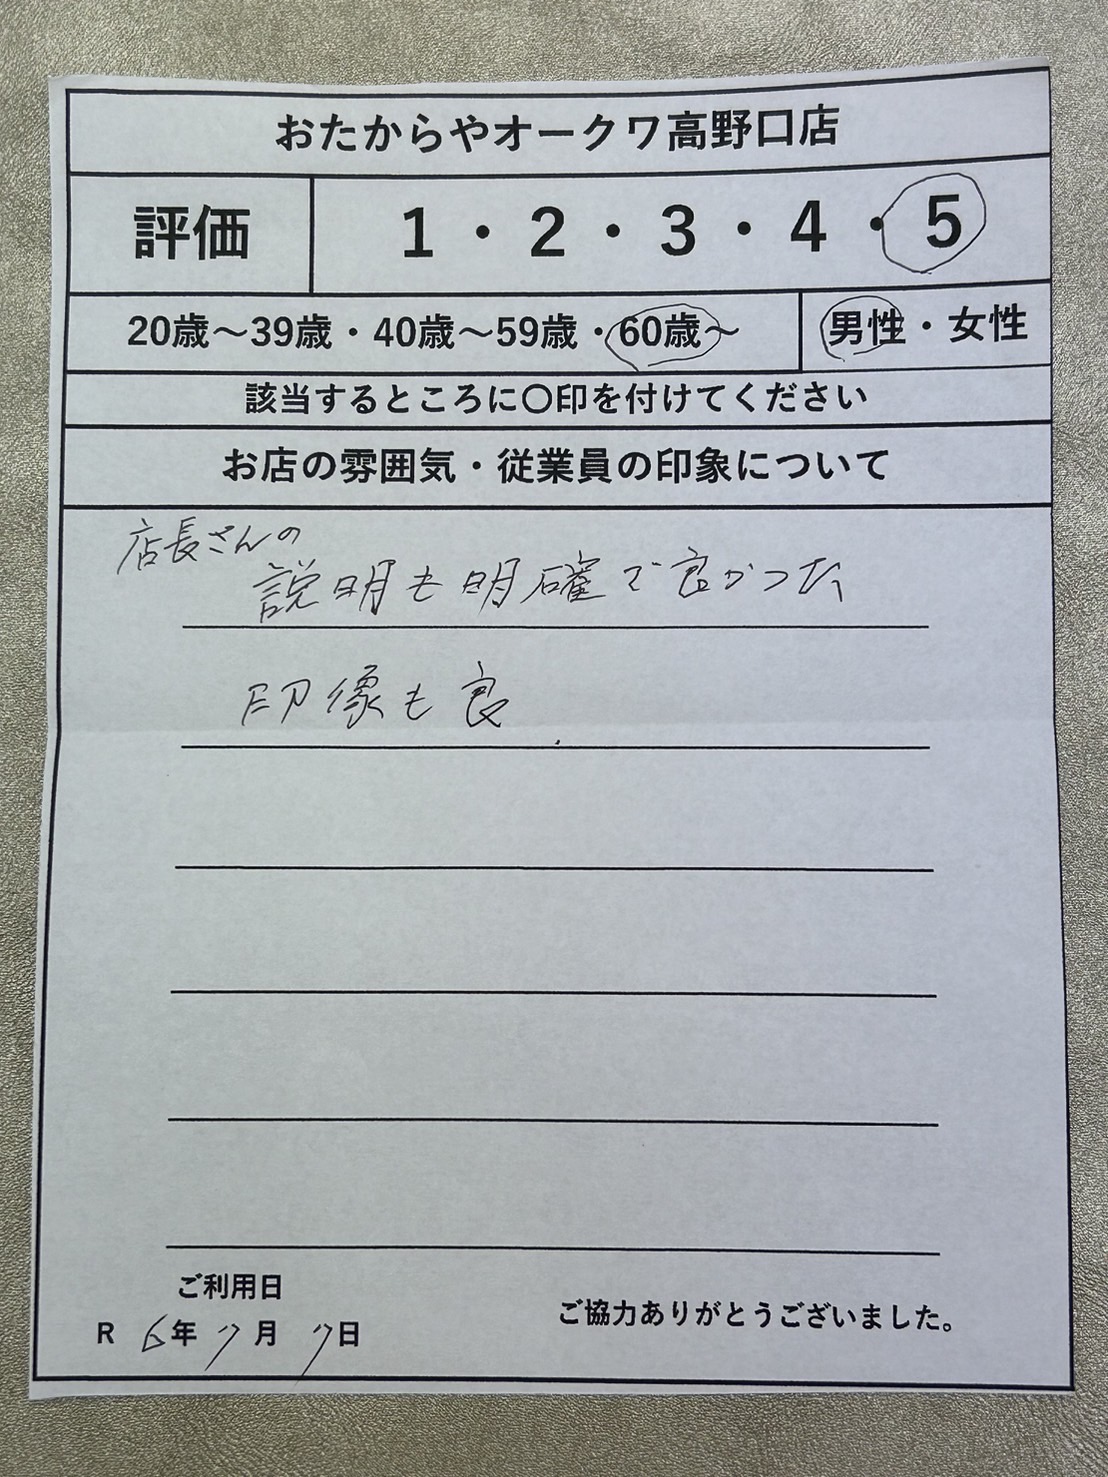 おたからやオークワ高野口店
評価 1・2・3・4・5
20歳～39歳・40歳～59歳・60歳～ 男性・女性
該当するところに〇印を付けてください
お店の雰囲気・従業員の印象について
店長さんの
説明も明確で良かった
印像も良
ご利用日
R 6年 7月 7日
ご協力ありがとうございました。